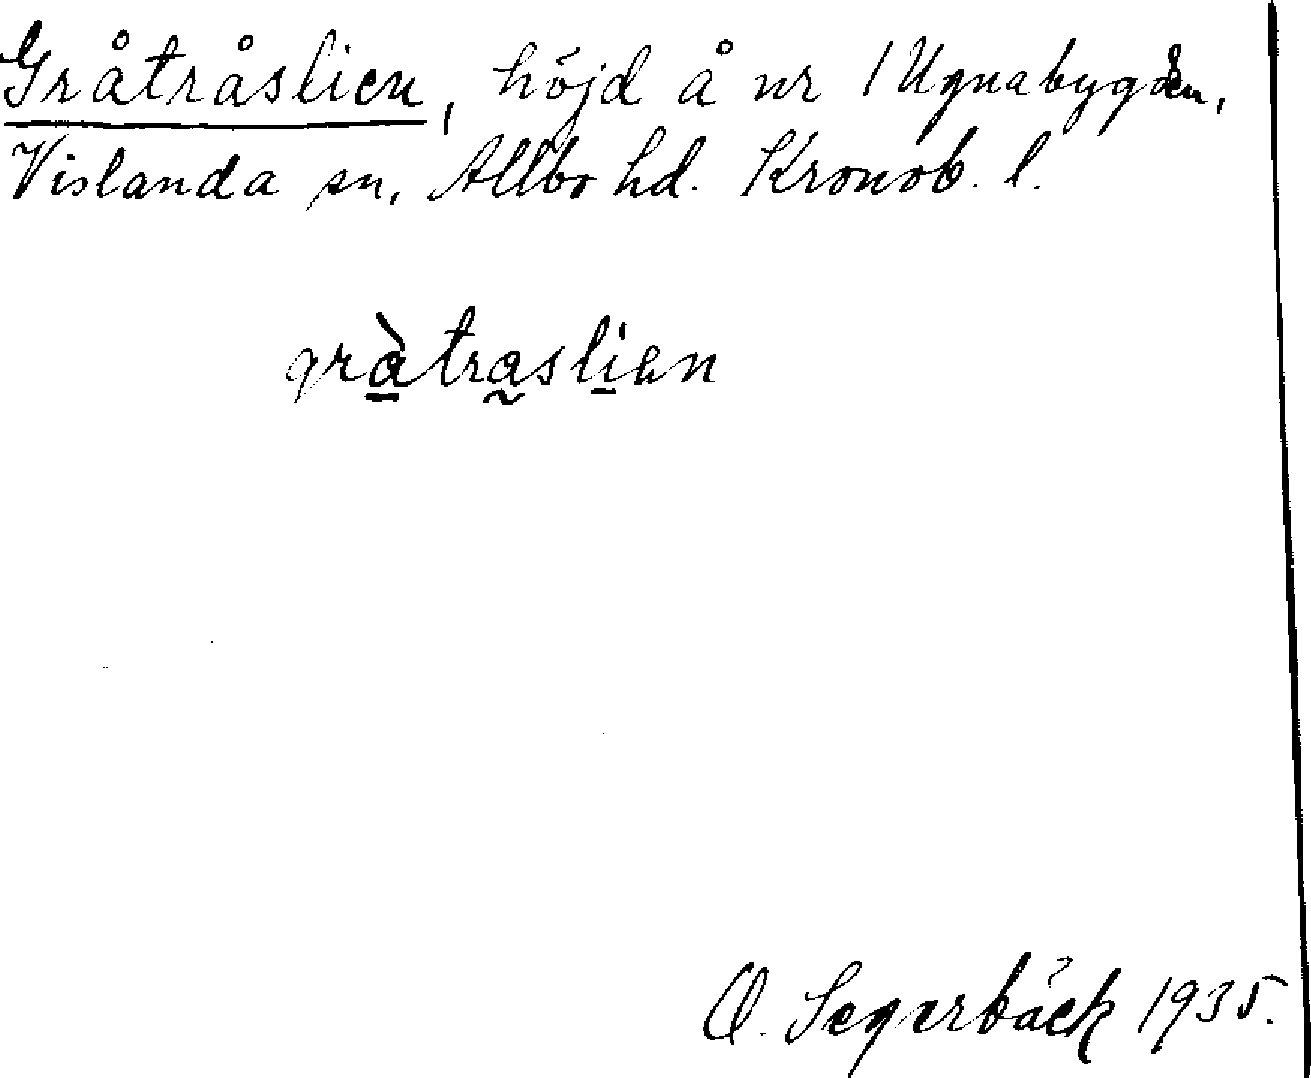 Gråtråslien, höjd å nr 1 Ugnabygden,
Vislanda sn, Allbo hd. Kronob. l.
gràtraslien
O. Segerbäck 1935.